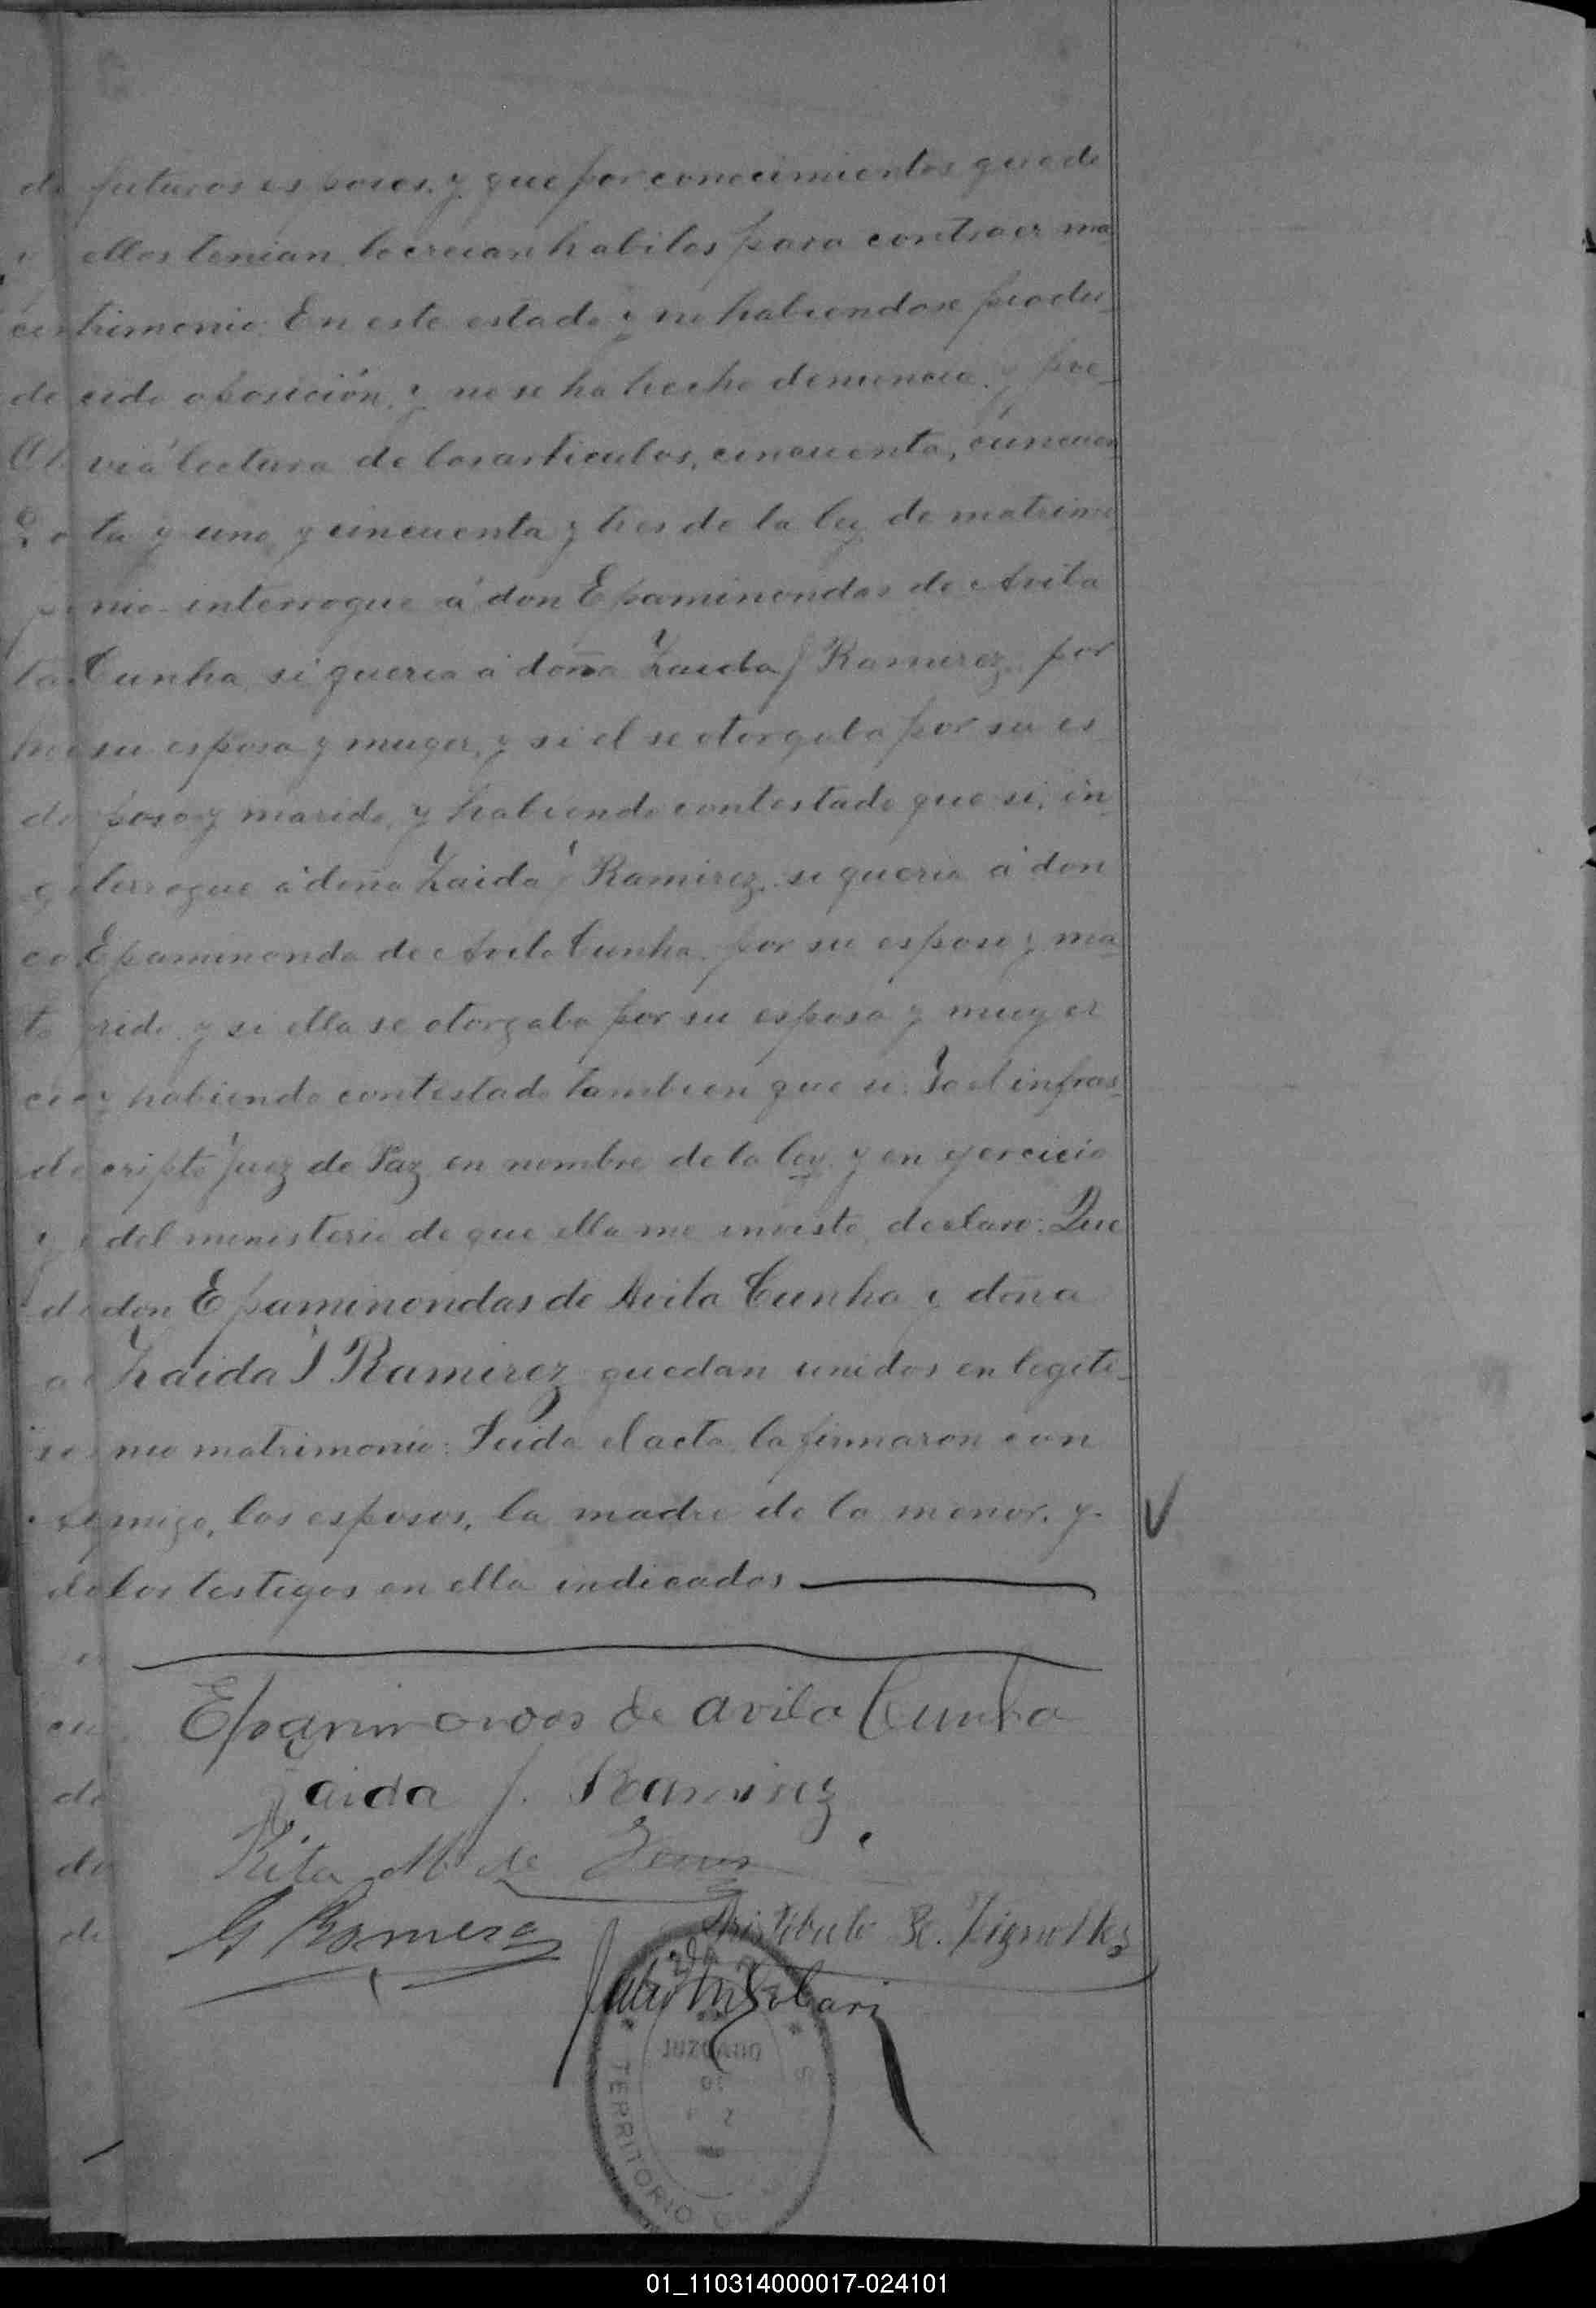 futuros esposos, y que por conocimientos que de
ellos tenian, lo creian habiles para contraer ma
trimonio. En este estado y no habiendose produ_
cido oposición, y no se ha hecho denuncia, y pre_
via lectura de los articulos, cincuenta, cincuen
ta y uno, y cincuenta y tres de la ley de matrimo
nio interrogue á don Epaminondas de Avila
Cunha, si queria a doña Zaida J Ramirez, por
su esposa y muger, y si el se otorgaba por su es_
poso y marido, y habiendo contestado que si, in_
terrogue á doña Zaida J Ramirez, si queria á don
Epaminonda de Avila Cunha, por su esposo y ma
rido, y si ella se otorgaba por su esposa y muger
y habiendo contestado tambien que si. Yo el infras_
cripto Juez de Paz en nombre de la ley y en ejercicio
del ministerio de que ella me inviste, declaro: Que
don Epaminondas de Avila Cunha y doña
Zaida J Ramirez quedan unidos en legiti_
mo matrimonio: Leida el acta, la firmaron con
migo, los esposos, la madre de la menor, y
los testigos en ella indicados
Epaminondas de Avila Cunha
Zaida J. Ramirez
Rita M. de
G Romero
Aristobulo R.
JUZGADO
TERRITORIO
01_110314000017-024101